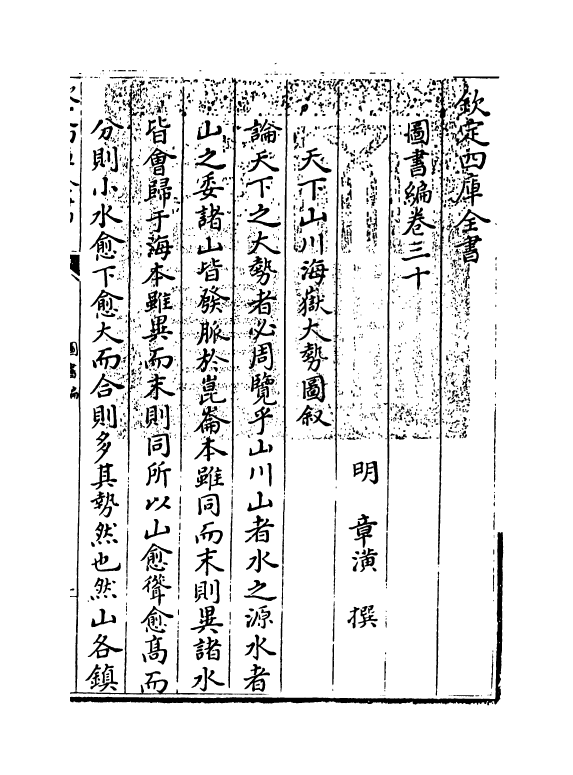 欽定四庫全書
圖書編卷三十
明 章潢 撰
天下山川海嶽大勢圖叙
論天下之大勢者必周覽乎山川山者水之源水者
山之委諸山皆發脈於崑崙本雖同而末則異諸水
皆會歸于海本雖異而末則同所以山愈聳愈髙而
分則小水愈下愈大而合則多其勢然也然山各鎮
圖書編